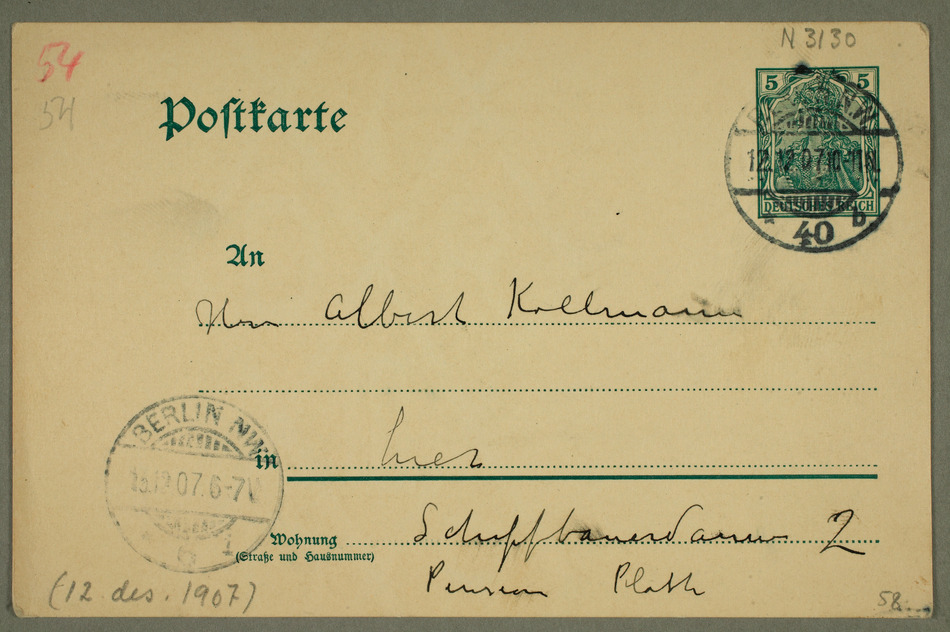 N 3130
54
54
Postkarte
5 5
BERLIN NW
12.12.07.10-11N.
DEUTSCHES REICH
* 40 b
An
Herrn Albert Kollmann
BERLIN NW
in hier
13.12.07.6-7V
Wohnung Schiffbauerdamm 2
(Straße und Hausnummer)
Pension Plath
(12. des. 1907)
58